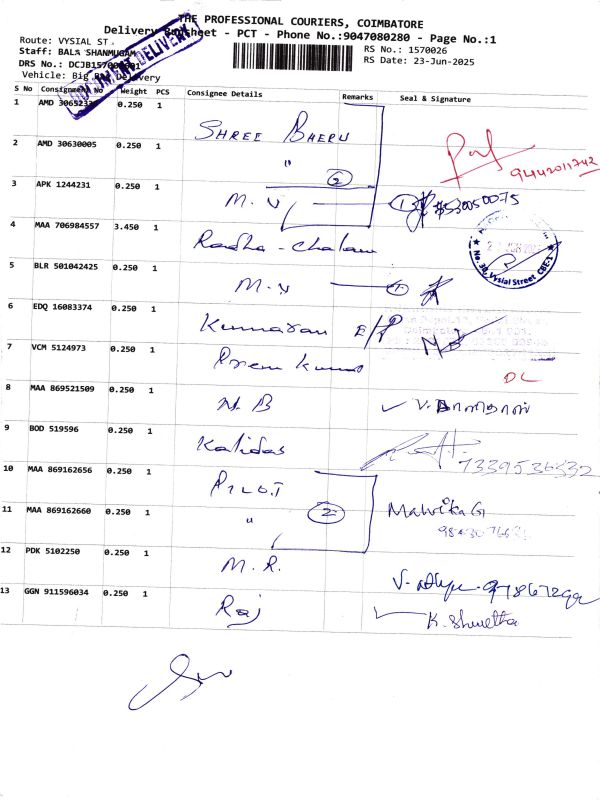 THE PROFESSIONAL COURIERS, COIMBATORE
Delivery Runsheet - PCT - Phone No.:9047080280 - Page No.:1
Route: VYSIAL ST.
RS No.: 1570026
Staff: BALA SHANMUGAM
RS Date: 23-Jun-2025
DRS No.: DCJB15700
Vehicle: Big Delivery
DOCUMENT DELIVERY
S No Consignment No Weight PCS Consignee Details Remarks Seal & Signature
1 AMD 0.250 1 SHREE BHERU
2 AMD 30630005 0.250 1 " 2 9442011742
3 APK 1244231 0.250 1 M.V 1
4 MAA 706984557 3.450 1 Radha - chalam
No. 30, Vysial Street CBE-1
5 BLR 501042425 0.250 1 M.V 1
6 EDQ 16083374 0.250 1 Kumaran
7 VCM 5124973 0.250 1 Prem Kumar
DL
8 MAA 869521509 0.250 1 N.B
9 BOD 519596 0.250 1 Kalidas 7339536332
10 MAA 869162656 0.250 1 PILOT
11 MAA 869162660 0.250 1 " 2 Malvika G
12 PDK 5102250 0.250 1 M.R.
13 GGN 911596034 0.250 1 Raj K. Shwetha